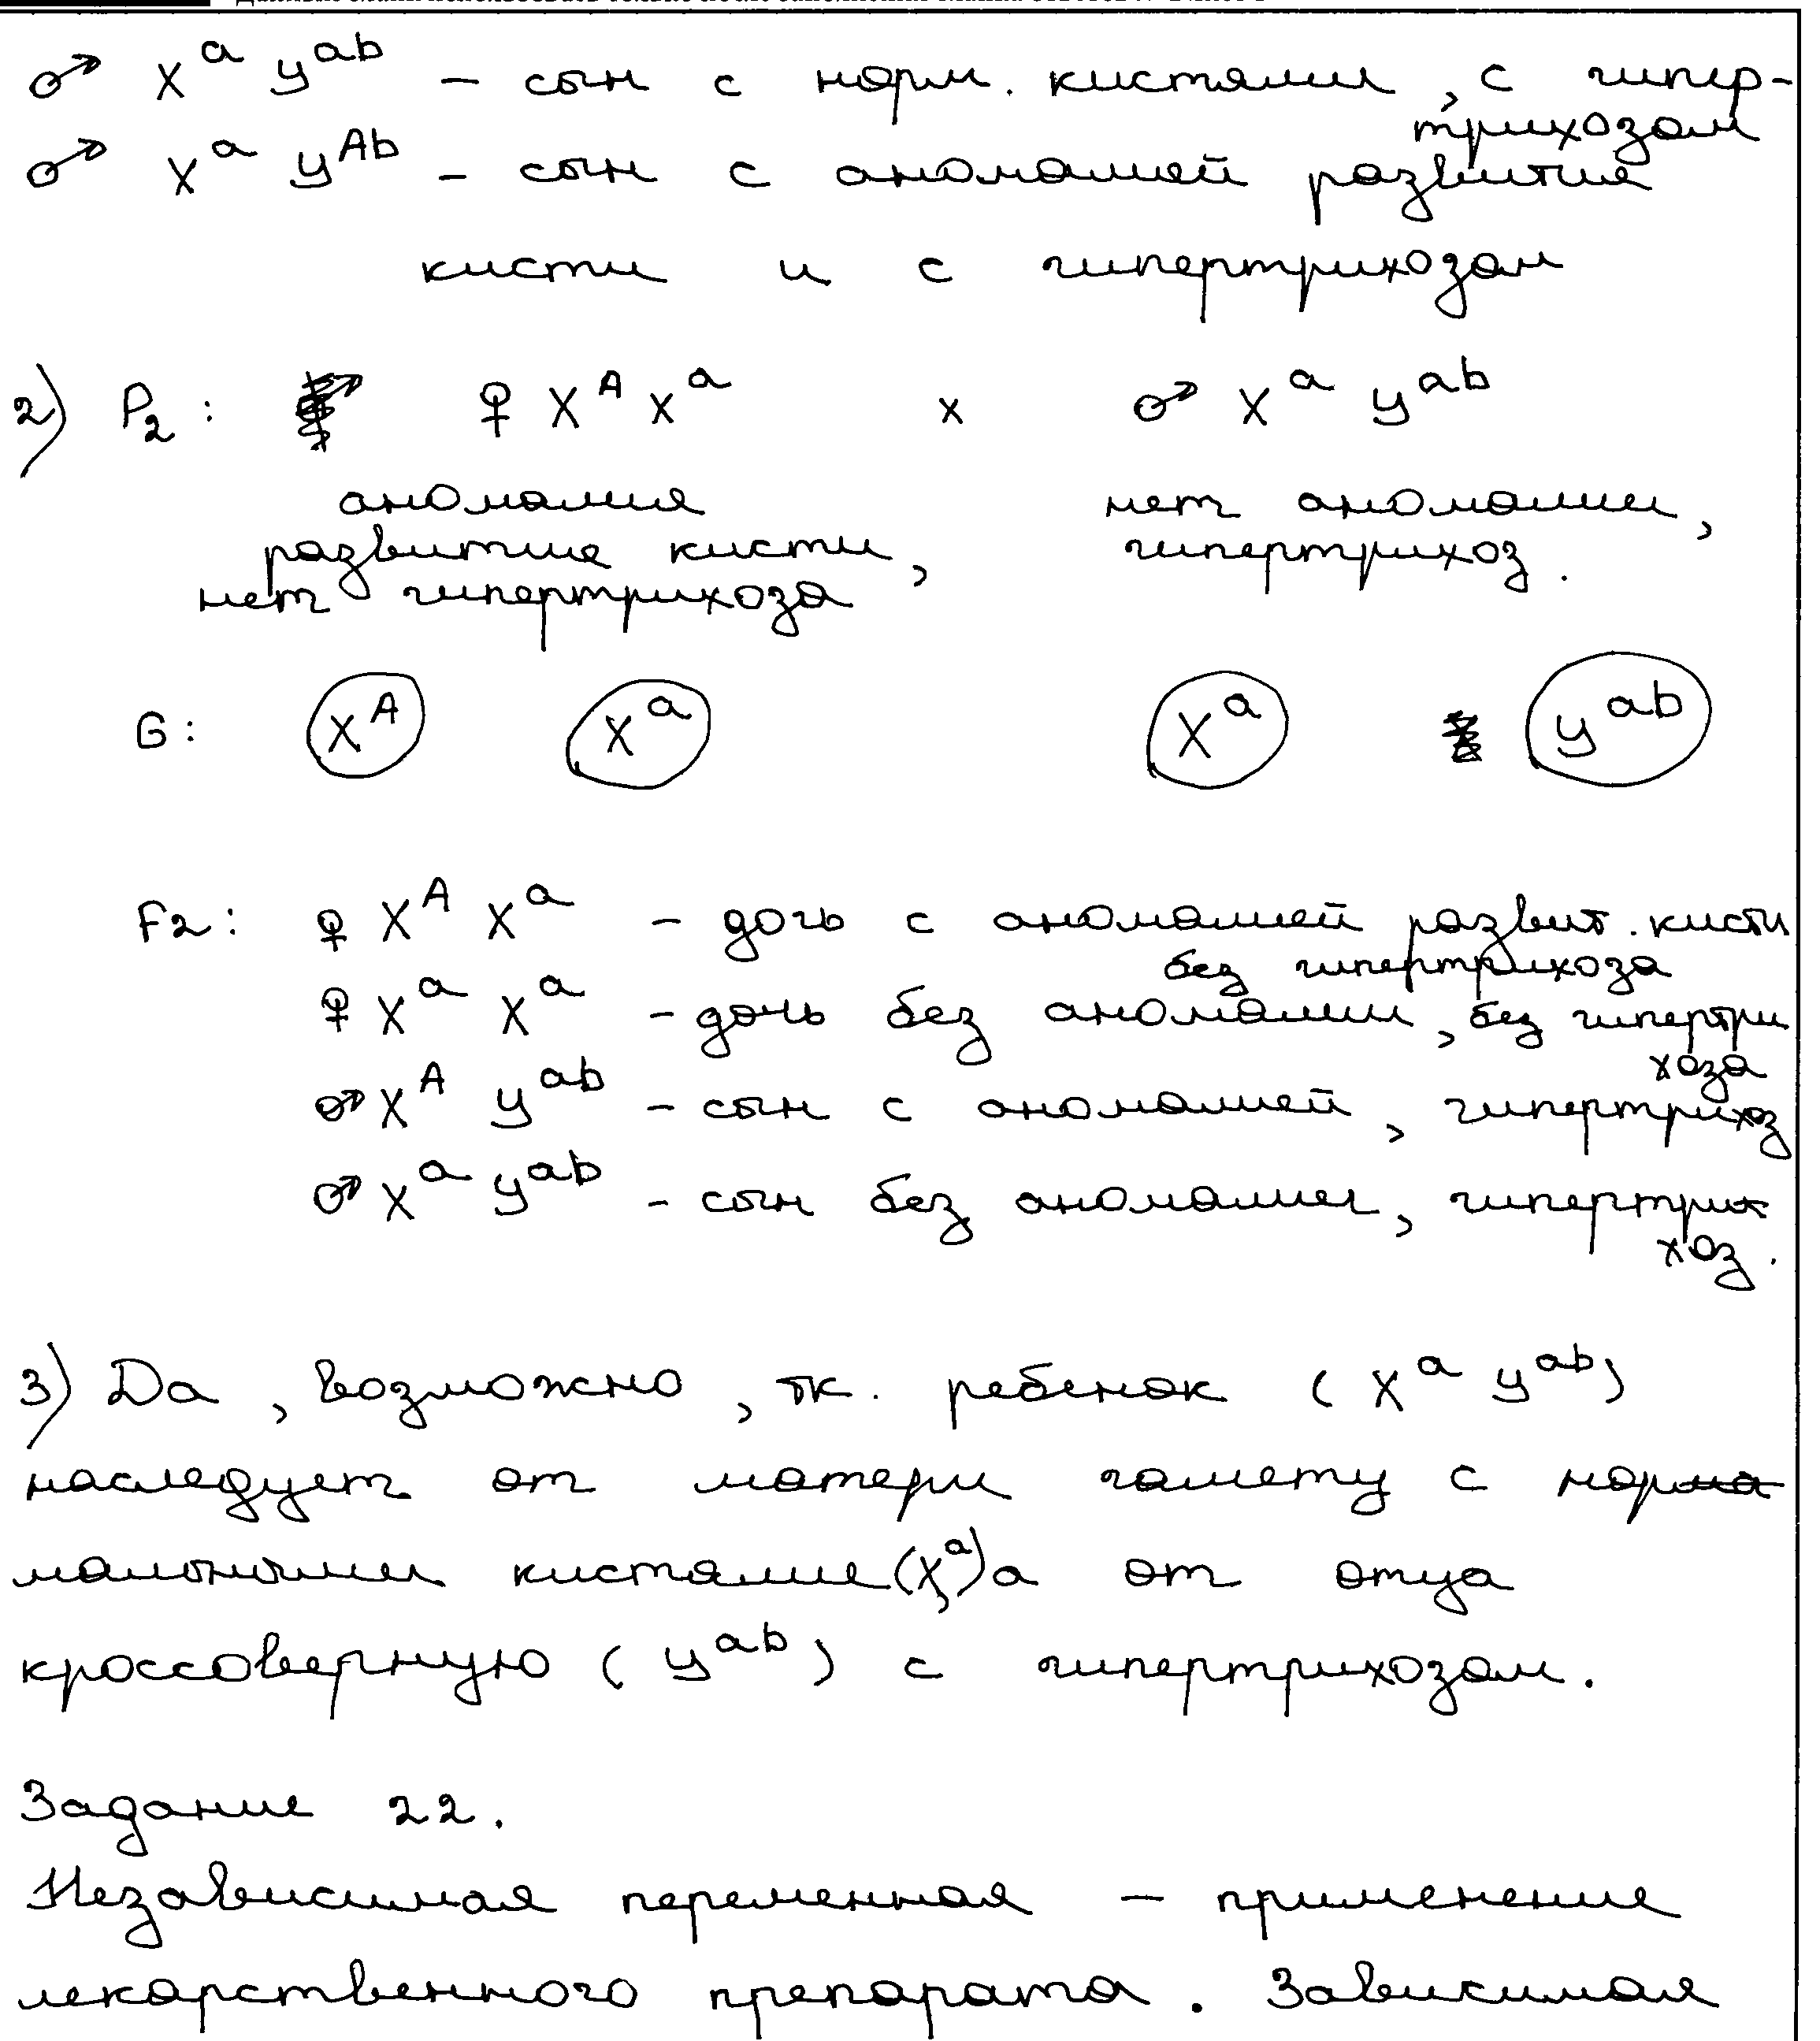 ♂ Xᵃ Yᵃᵇ – сын с норм. кистями, с гипер-
трихозом
♂ Xᵃ Yᴬᵇ – сын с аномалией развития
кисти и с гипертрихозом
2) P₂: ♀ Xᴬ Xᵃ x ♂ Xᵃ Yᵃᵇ
аномалия нет аномалии,
развитие кисти, гипертрихоз.
нет гипертрихоза
G: Xᴬ Xᵃ Xᵃ Yᵃᵇ
F2: ♀ Xᴬ Xᵃ – дочь с аномалией развит. кисти
без гипертрихоза
♀ Xᵃ Xᵃ – дочь без аномалии, без гипертри
хоза
♂ Xᴬ Yᵃᵇ – сын с аномалией, гипертрихоз
♂ Xᵃ Yᵃᵇ – сын без аномалии, гипертри
хоз.
3) Да, возможно, тк. ребенок (Xᵃ Yᵃᵇ)
наследует от матери гамету с нор
мальными кистями (Xᵃ), а от отца
кроссоверную (Yᵃᵇ) с гипертрихозом.
Задание 22.
Независимая переменная – применение
лекарственного препарата. Зависимая